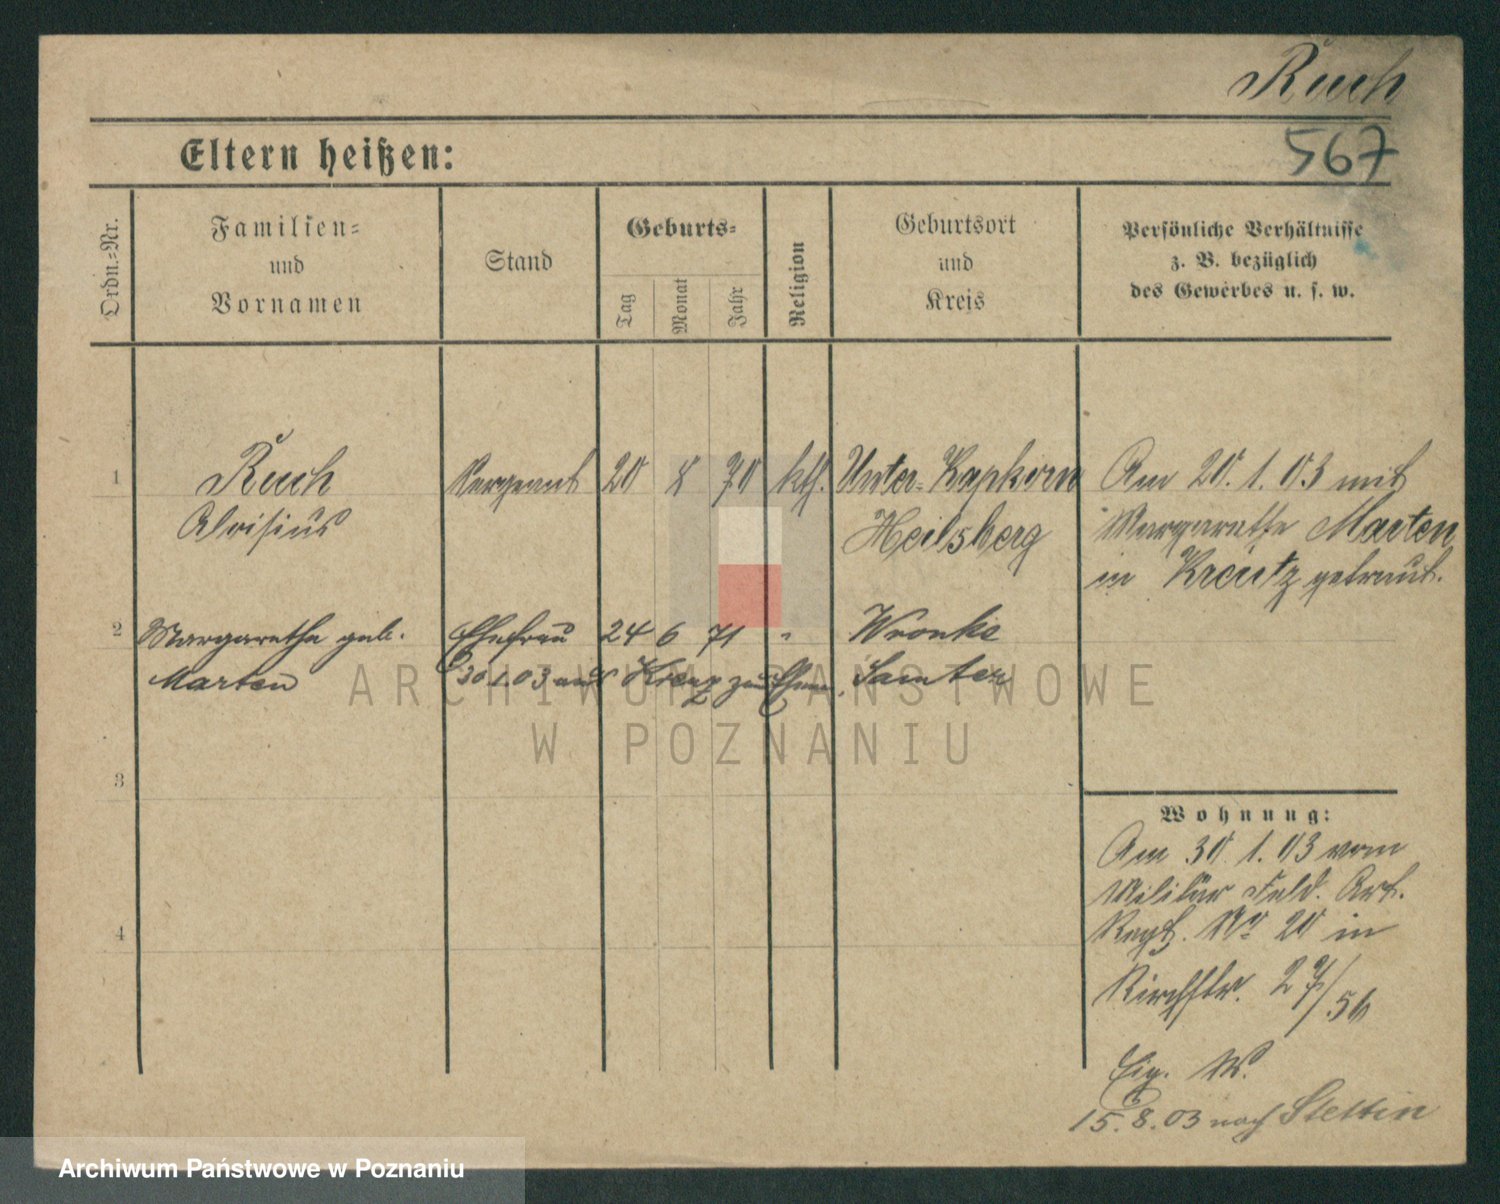 Ruch
Eltern heißen:
567
Ordn.-Nr.
Familien-
und
Vornamen
Stand
Geburts-
Tag
Monat
Jahr
Religion
Geburtsort
und
Kreis
Persönliche Verhältnisse
z. B. bezüglich
des Gewerbes u. s. w.
1
Ruch
Aloisius
Sergeant
20
8
70
kth.
Unter-Kapkeim
Heilsberg
Am 20.1.03 mit
Margarethe Marten
in Kreutz getraut.
2
Margarethe geb.
Marten
Ehefrau
24
6
71
"
Wronke
Samter
30.1.03 aus Kreuz zum Ehem.
3
4
Wohnung:
Am 30.1.03 vom
Militär Feld. Art.
Regt. No 20 in
Kirchstr. 27/56
Eig. W.
15.8.03 nach Stettin
ARCHIWUM PAŃSTWOWE
W POZNANIU
Archiwum Państwowe w Poznaniu